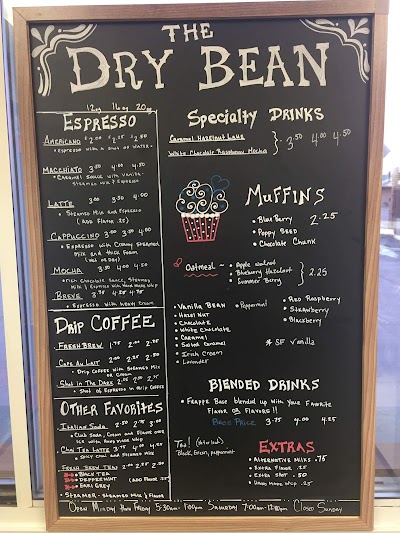 THE
DRY BEAN
12oz 16oz 20oz
ESPRESSO
AMERICANO $2.00 $2.25 $2.50
• ESPRESSO WITH A SHOT OF WATER
MACCHIATO 3.50 4.00 4.50
• CARAMEL SAUCE WITH VANILLA
STEAMED MILK & ESPRESSO
LATTE 3.50 4.00 4.50
• STEAMED MILK AND ESPRESSO
(ADD FLAVOR .25)
CAPPUCCINO 3.00 3.50 4.00
• ESPRESSO WITH CREAMY STEAMED
MILK AND THICK FOAM
(WET OR DRY)
MOCHA 3.50 4.00 4.50
• RICH CHOCOLATE SAUCE, STEAMED
MILK & ESPRESSO WITH HAND MADE WHIP
BREVE 3.75 4.25 4.75
• ESPRESSO WITH HEAVY CREAM
DRIP COFFEE
FRESH BREW 1.75 2.00 2.25
CAFE AU LAIT 2.00 2.25 2.50
• DRIP COFFEE WITH STEAMED MILK
OR CREAM
SHOT IN THE DARK 2.25 2.50 2.75
• SHOT OF ESPRESSO IN DRIP COFFEE
OTHER FAVORITES
ITALIAN SODA 2.50 2.75 3.00
• CLUB SODA, CREAM AND FLAVOR OVER
ICE WITH HAND MADE WHIP
CHAI TEA LATTE 3.75 4.00 4.25
• SPICY CHAI AND STEAMED MILK
FRESH BREW TEAS 2.00 2.25 2.50
BLACK TEA
PEPPERMINT (ADD FLAVOR .25)
EARL GREY
STEAMER - STEAMED MILK & FLAVOR
Specialty DRINKS
Caramel Hazelnut Latte
White Chocolate Raspberry Mocha
3.50 4.00 4.50
MUFFINS
• Blue Berry
• Poppy SEED
• Chocolate Chunk
2.25
Oatmeal
• Apple walnut
• Blueberry Hazelnut
• Summer Berry
2.25
• Vanilla BEAN
• Hazel NUT
• Chocolate
• White Chocolate
• Caramel
• Salted Caramel
• Irish Cream
• Lavender
• Peppermint
• Red Raspberry
• Strawberry
• Blackberry
* SF Vanilla
BLENDED DRINKS
• Frappe Base blended up with Your Favorite
Flavor OR Flavors!!
BASE PRICE 3.75 4.00 4.25
Black, Green, peppermint
EXTRAS
• Alternative Milks .75
• Extra Flavor .25
• Extra Shot .50
• Hand Made Whip .25
OPEN Monday thru Friday 5:30am-1:00pm Saturday 7:00am-12:00pm CLOSED Sunday